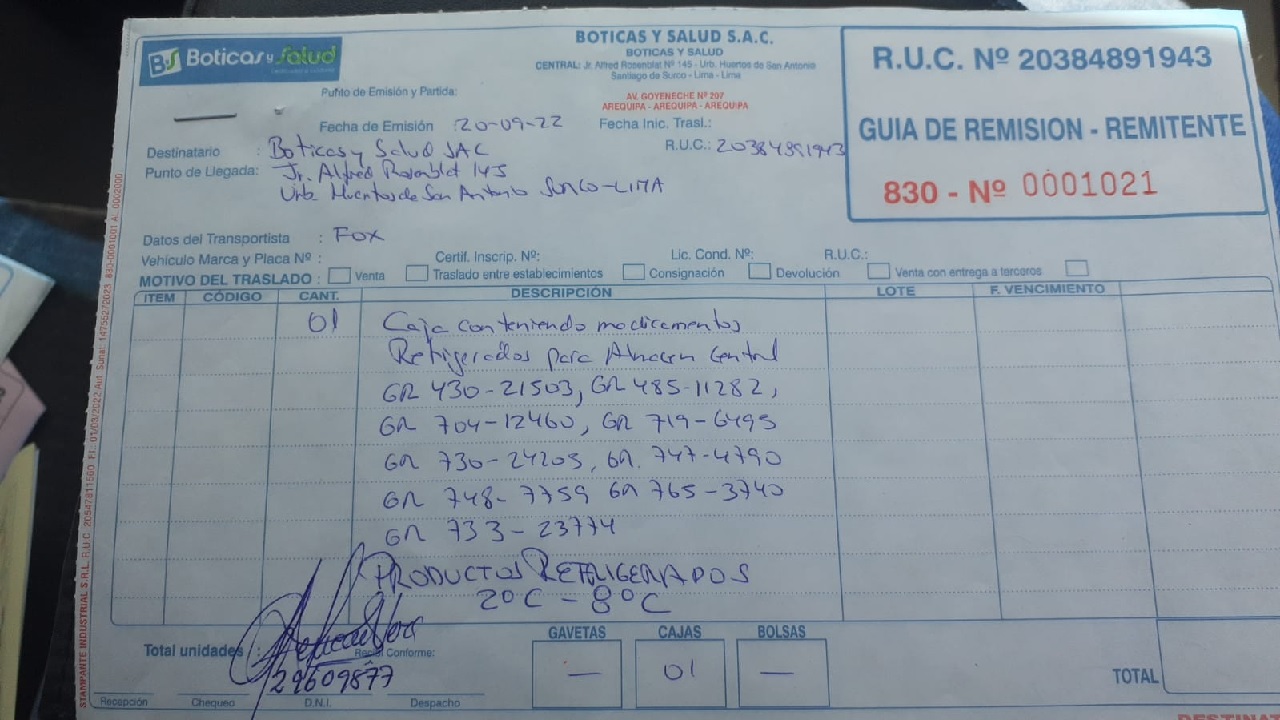 Boticas y Salud
BOTICAS Y SALUD S.A.C.
BOTICAS Y SALUD
CENTRAL: Jr. Alfred Rosenblat Nº 145 - Urb. Huertos de San Antonio
Santiago de Surco - Lima - Lima
R.U.C. Nº 20384891943
GUIA DE REMISION - REMITENTE
830 - Nº 0001021
Punto de Emisión y Partida:
AV. GOYENECHE Nº 207
AREQUIPA - AREQUIPA - AREQUIPA
Fecha de Emisión 20-09-22 Fecha Inic. Trasl.:
Destinatario : Boticas y Salud SAC R.U.C.: 20384891943
Punto de Llegada: Jr. Alfred Rosenblat 145
Urb. Huertos de San Antonio SURCO-LIMA
Datos del Transportista : Fox
Vehículo Marca y Placa Nº : Certif. Inscrip. Nº: Lic. Cond. Nº: R.U.C.:
MOTIVO DEL TRASLADO : Venta Traslado entre establecimientos Consignación Devolución Venta con entrega a terceros
ITEM CÓDIGO CANT. DESCRIPCIÓN LOTE F. VENCIMIENTO
01 Caja conteniendo medicamentos
Refrigerados para Almacen Central
GR 430-21503, GR 485-11282,
GR 704-12460, GR 719-6495
GR 730-24205, GR. 747-4790
GR 748-7759 GR 765-3740
GR 733-23774
PRODUCTOS REFRIGERADOS
2°C - 8°C
Total unidades : Recibí Conforme:
29609877
GAVETAS CAJAS BOLSAS
— 01 —
TOTAL
Recepción Chequeo D.N.I. Despacho